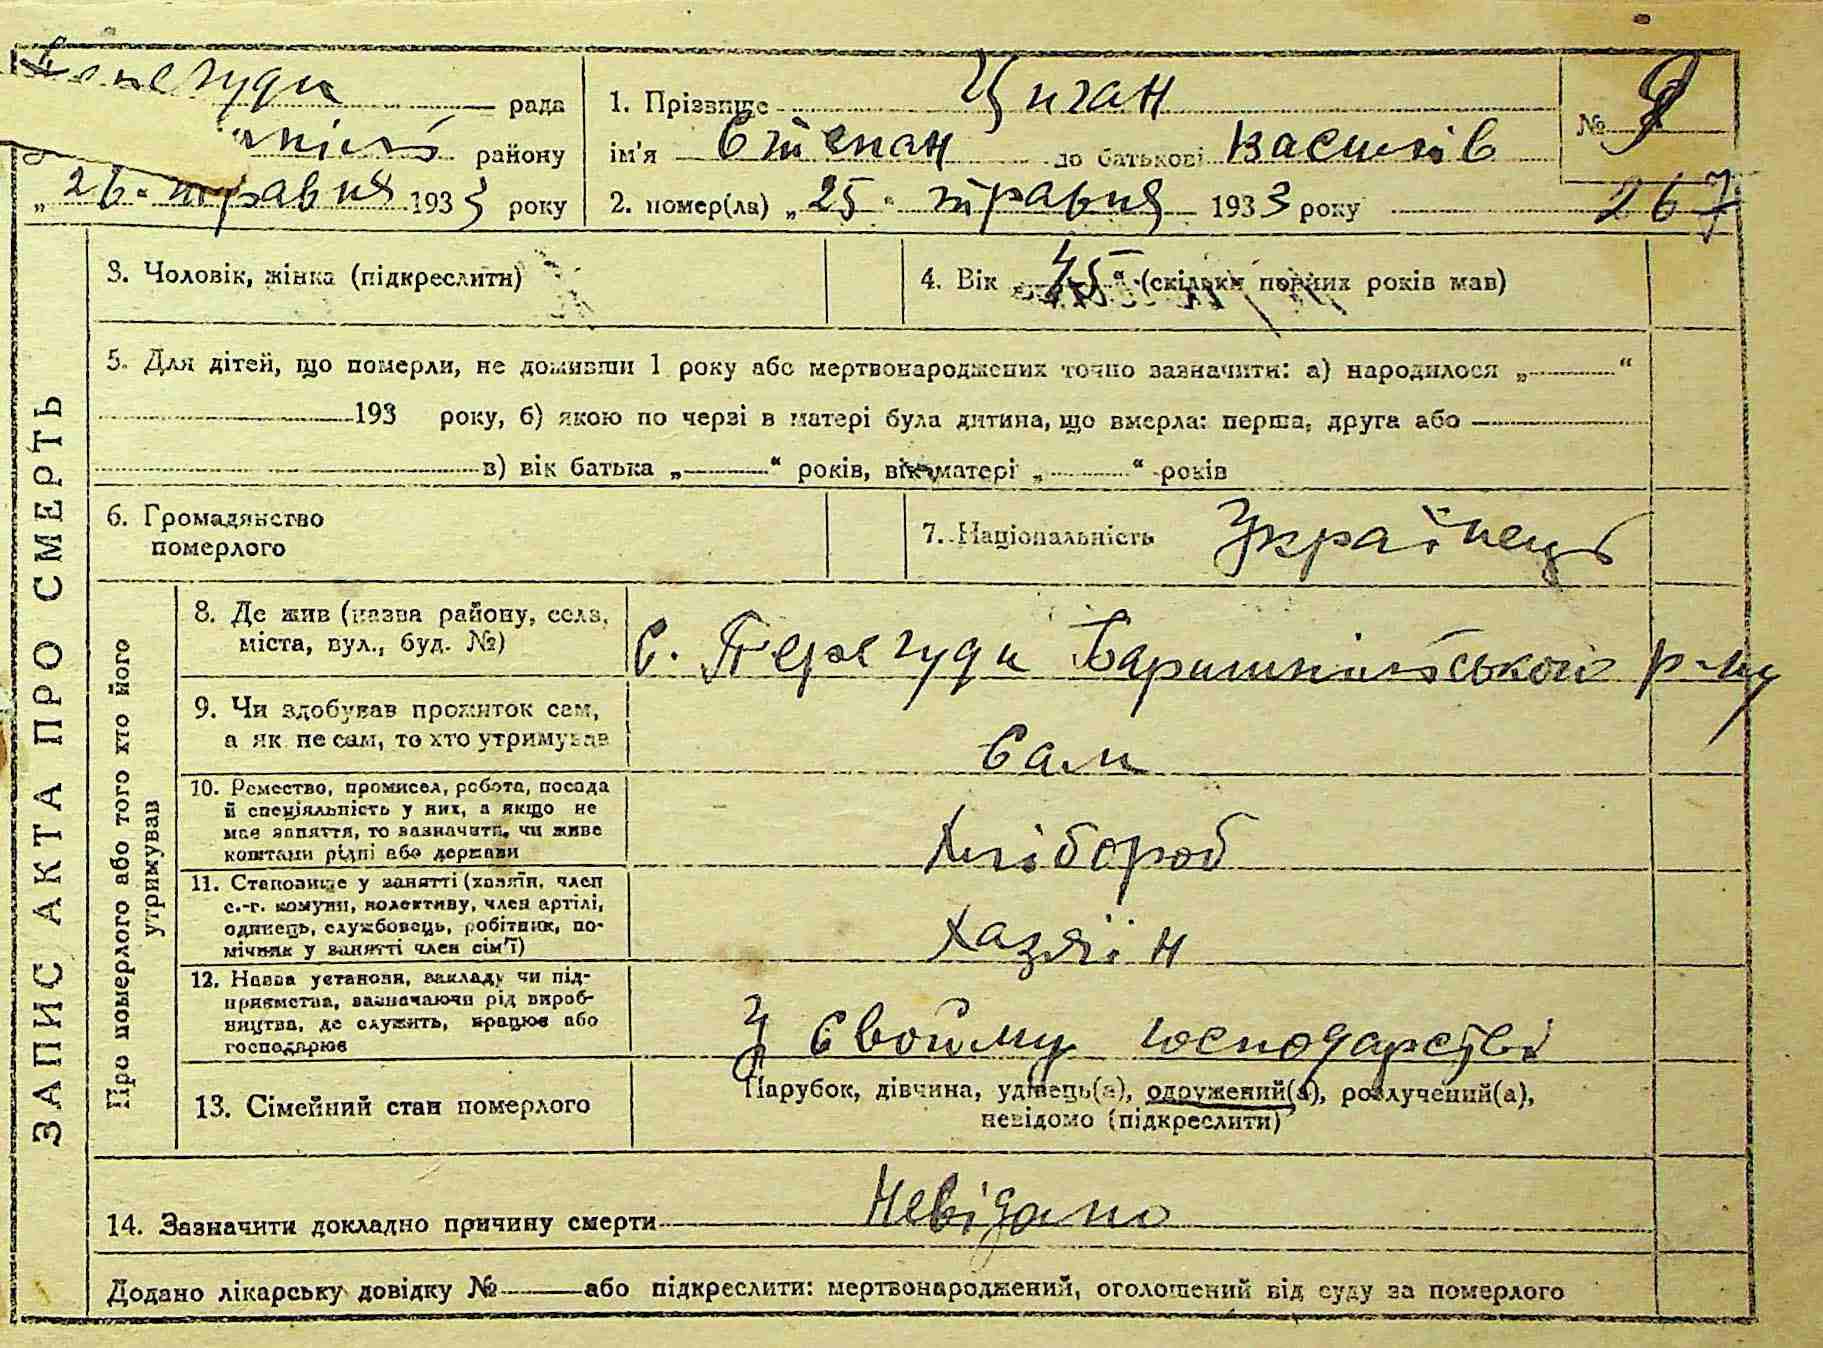 Перегуди рада
района
„26" травня 1933 року
1. Прізвище Циган
ім'я Степан по батькові Василів
2. помер(ла) „25" травня 1933 року
№ 9
267
ЗАПИС АКТА ПРО СМЕРТЬ
3. Чоловік, жінка (підкреслити)
4. Вік 45 (скільки повних років мав)
5. Для дітей, що померли, не доживши 1 року або мертвонароджених точно зазначити: а) народилося „ “
193 року, б) якою по черзі в матері була дитина, що вмерла: перша, друга або
в) вік батька „ “ років, вік матері „ “ років
6. Громадянство
померлого
7. Національність Українець
Про померлого або того хто його
утримував
8. Де жив (назва району, села,
міста, вул., буд. №)
с. Перегуди Баришпільського р-ну
9. Чи здобував прожиток сам,
а як не сам, то хто утримував
Сам
10. Ремество, промисел, робота, посада
й спеціяльність у них, а якщо не
має заняття, то зазначити, чи живе
коштами рідні або держави
Хлібороб
11. Становище у занятті (хазяїн, член
с.-г. комуни, колективу, член артілі,
одинець, службовець, робітник, по-
мічник у занятті член сім'ї)
Хазяїн
12. Назва установи, закладу чи під-
приємства, зазначаючи рід вироб-
ництва, де служить, працює або
господарює
У свойму господарстві
13. Сімейний стан померлого
Парубок, дівчина, удівець(а), одружений(а), розлучений(а),
невідомо (підкреслити)
14. Зазначити докладно причину смерти Невідамо
Додано лікарську довідку № або підкреслити: мертвонароджений, оголошений від суду за померлого